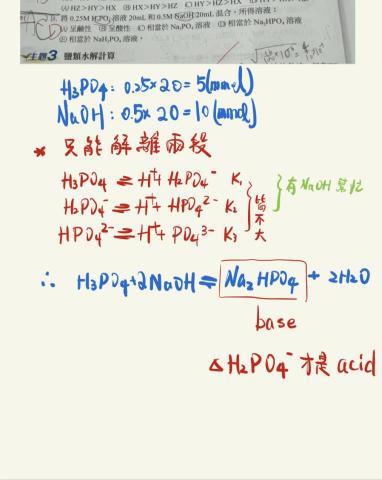 (A) HZ>HY>HX (B) HX>HY>HZ (C) HY>HZ>HX
將 0.25M H₃PO₄ 溶液 20mL 和 0.5M NaOH 20mL 混合，所得溶液：
(A) 呈鹼性 (B) 呈酸性 (C) 相當於 Na₃PO₄ 溶液 (D) 相當於 Na₂HPO₄ 溶液
(E) 相當於 NaH₂PO₄ 溶液。
主題3 鹽類水解計算
H₃PO₄：0.25×20=5(mmol)
NaOH：0.5×20=10(mmol)
* 只能解離兩段
H₃PO₄ ⇌ H⁺+H₂PO₄⁻ K₁
H₂PO₄⁻ ⇌ H⁺+HPO₄²⁻ K₂
HPO₄²⁻ ⇌ H⁺+PO₄³⁻ K₃
皆不大
有NaOH幫忙
∴ H₃PO₄+2NaOH ⇌ Na₂HPO₄ + 2H₂O
base
△H₂PO₄⁻ 才是 acid